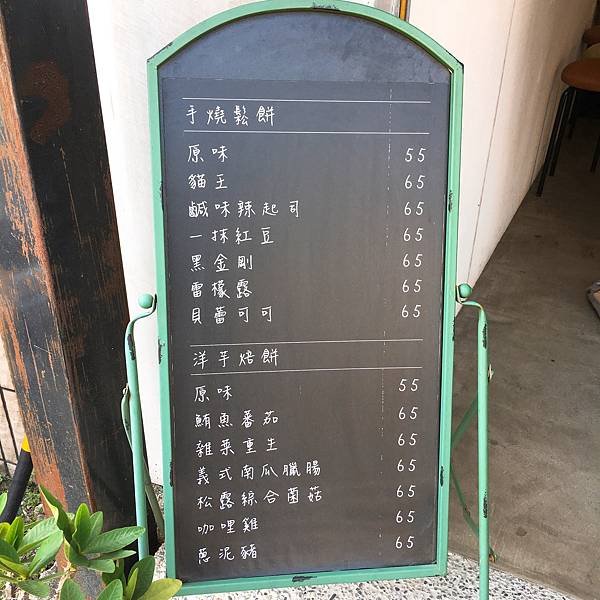 手燒鬆餅
原味 55
貓王 65
鹹味辣起司 65
一抹紅豆 65
黑金剛 65
雷檬露 65
貝蕾可可 65
洋芋焙餅
原味 55
鮪魚番茄 65
雜菜重生 65
義式南瓜臘腸 65
松露綜合菌菇 65
咖哩雞 65
蔥泥豬 65